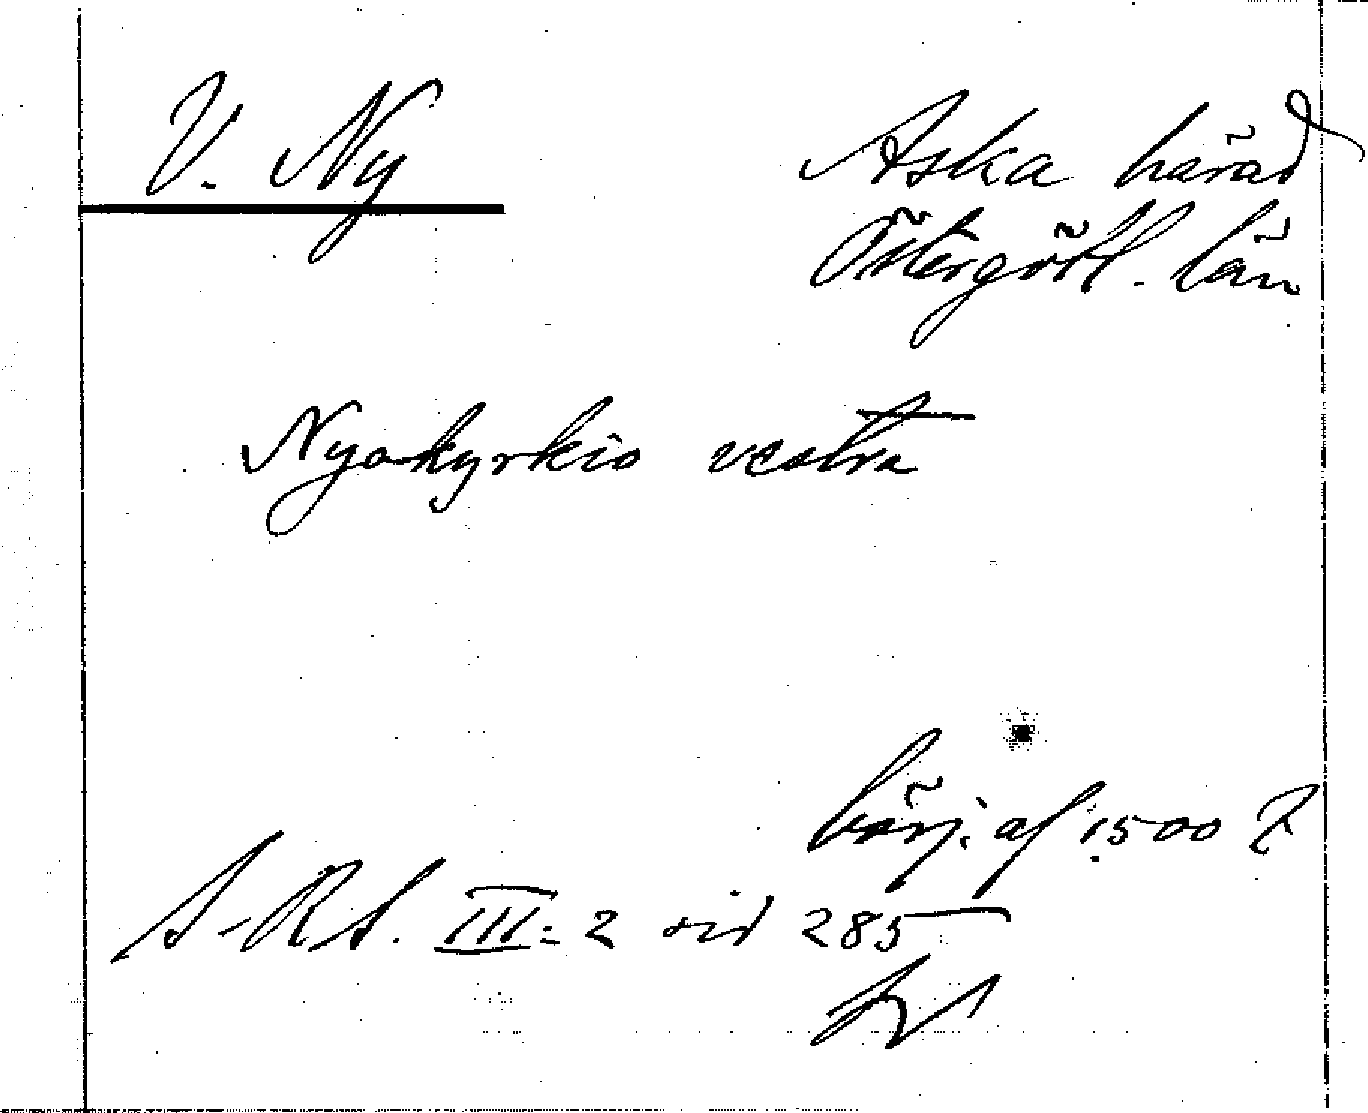 V. Ny
Aska härad
Östergötl. län
Nyakyrkio vestra
börj. af 1500 t
S.R.S. III:2 sid 285